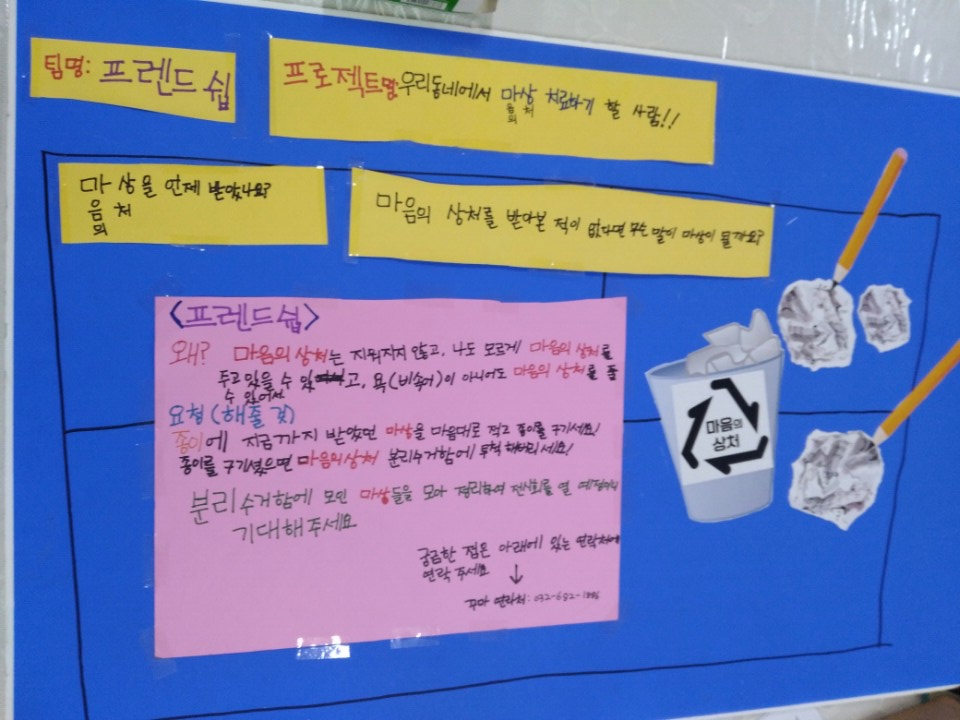 팀명: 프렌드쉽
프로젝트명 우리동네에서 마상 치료하기 할 사람!!
음 처
의
마 상을 언제 받았나요?
음 처
의
마음의 상처를 받아본 적이 없다면 무슨 말이 마상이 될까요?
<프렌드쉽>
왜? 마음의 상처는 지워지지 않고, 나도 모르게 마음의 상처를
두고 있을 수 있고, 욕(비속어)이 아니어도 마음의 상처를 줄
수 있어서
요청(해줄 것)
종이에 지금까지 받았던 마상을 마음대로 적고 종이를 구기세요!
종이를 구기셨으면 마음의 상처 분리수거함에 투척 해버리세요!
분리수거함에 모인 마상들을 모아 정리하여 전시회를 열 예정이니
기대해주세요
궁금한 점은 아래에 있는 연락처에
연락 주세요
꾸마 연락처: 032-682-
마음의
상처